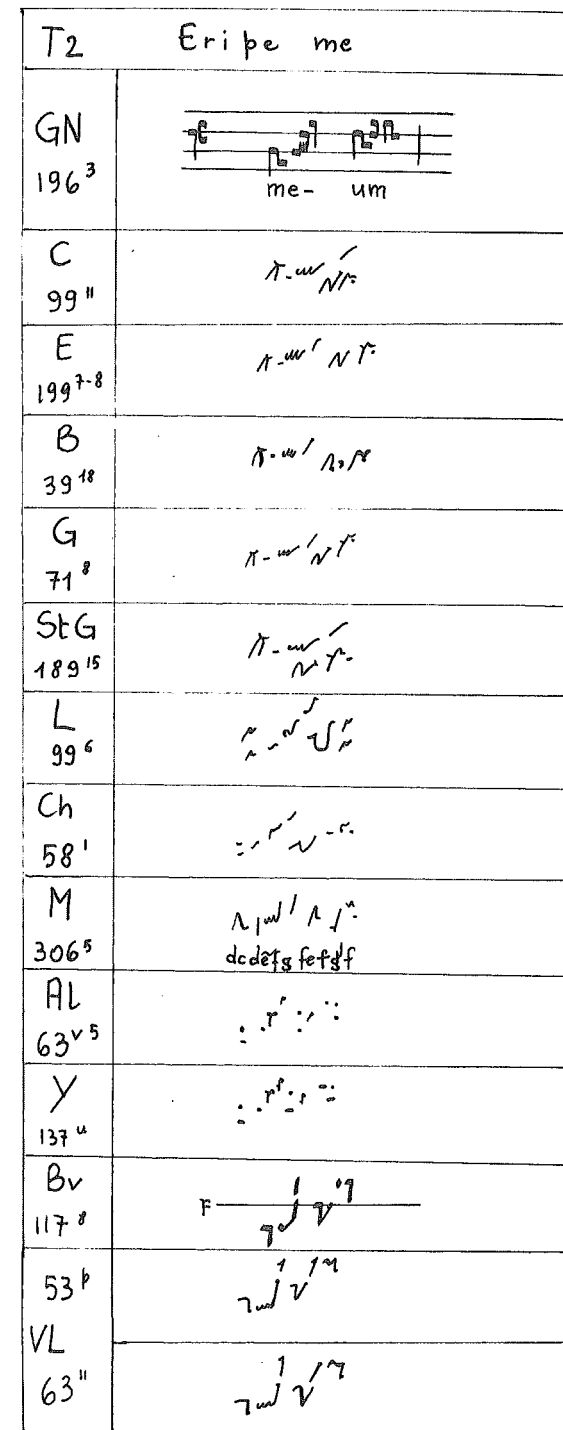 T2 Eripe me
GN
196³
me- um
C
99¹¹
E
199⁷⁻⁸
B
39¹⁸
G
71⁸
StG
189¹⁵
L
99⁶
Ch
58¹
M
306⁵
Al
63ᵛ⁵
Y
137ᵘ
Bv
117⁸
F
53ᵖ
VL
63¹¹